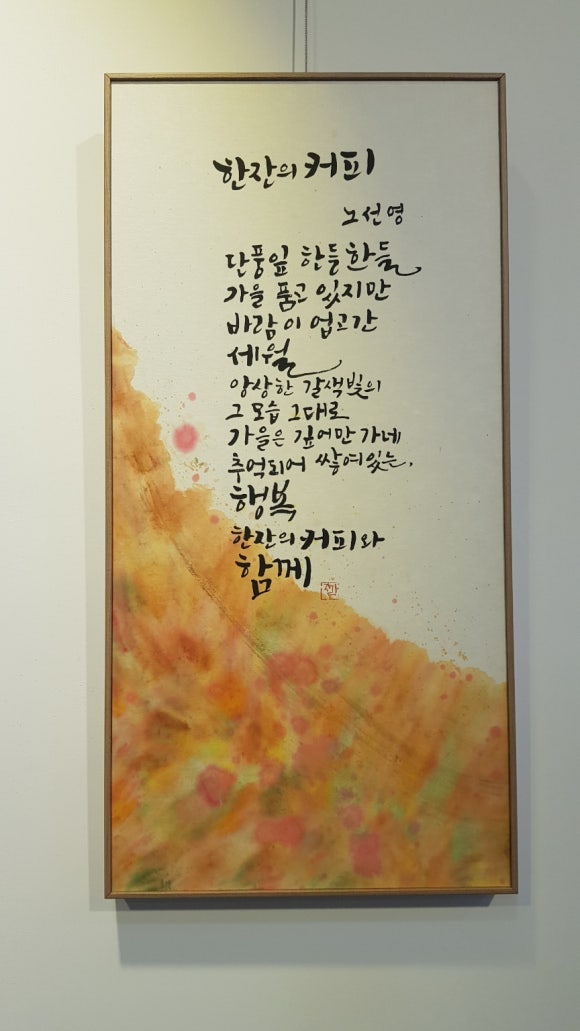 한잔의 커피
노선영
단풍잎 한들한들
가을 품고 있지만
바람이 업고간
세월
앙상한 갈색빛의
그 모습 그대로
가을은 깊어만 가네
추억되어 쌓여있는,
행복
한잔의 커피와
함께